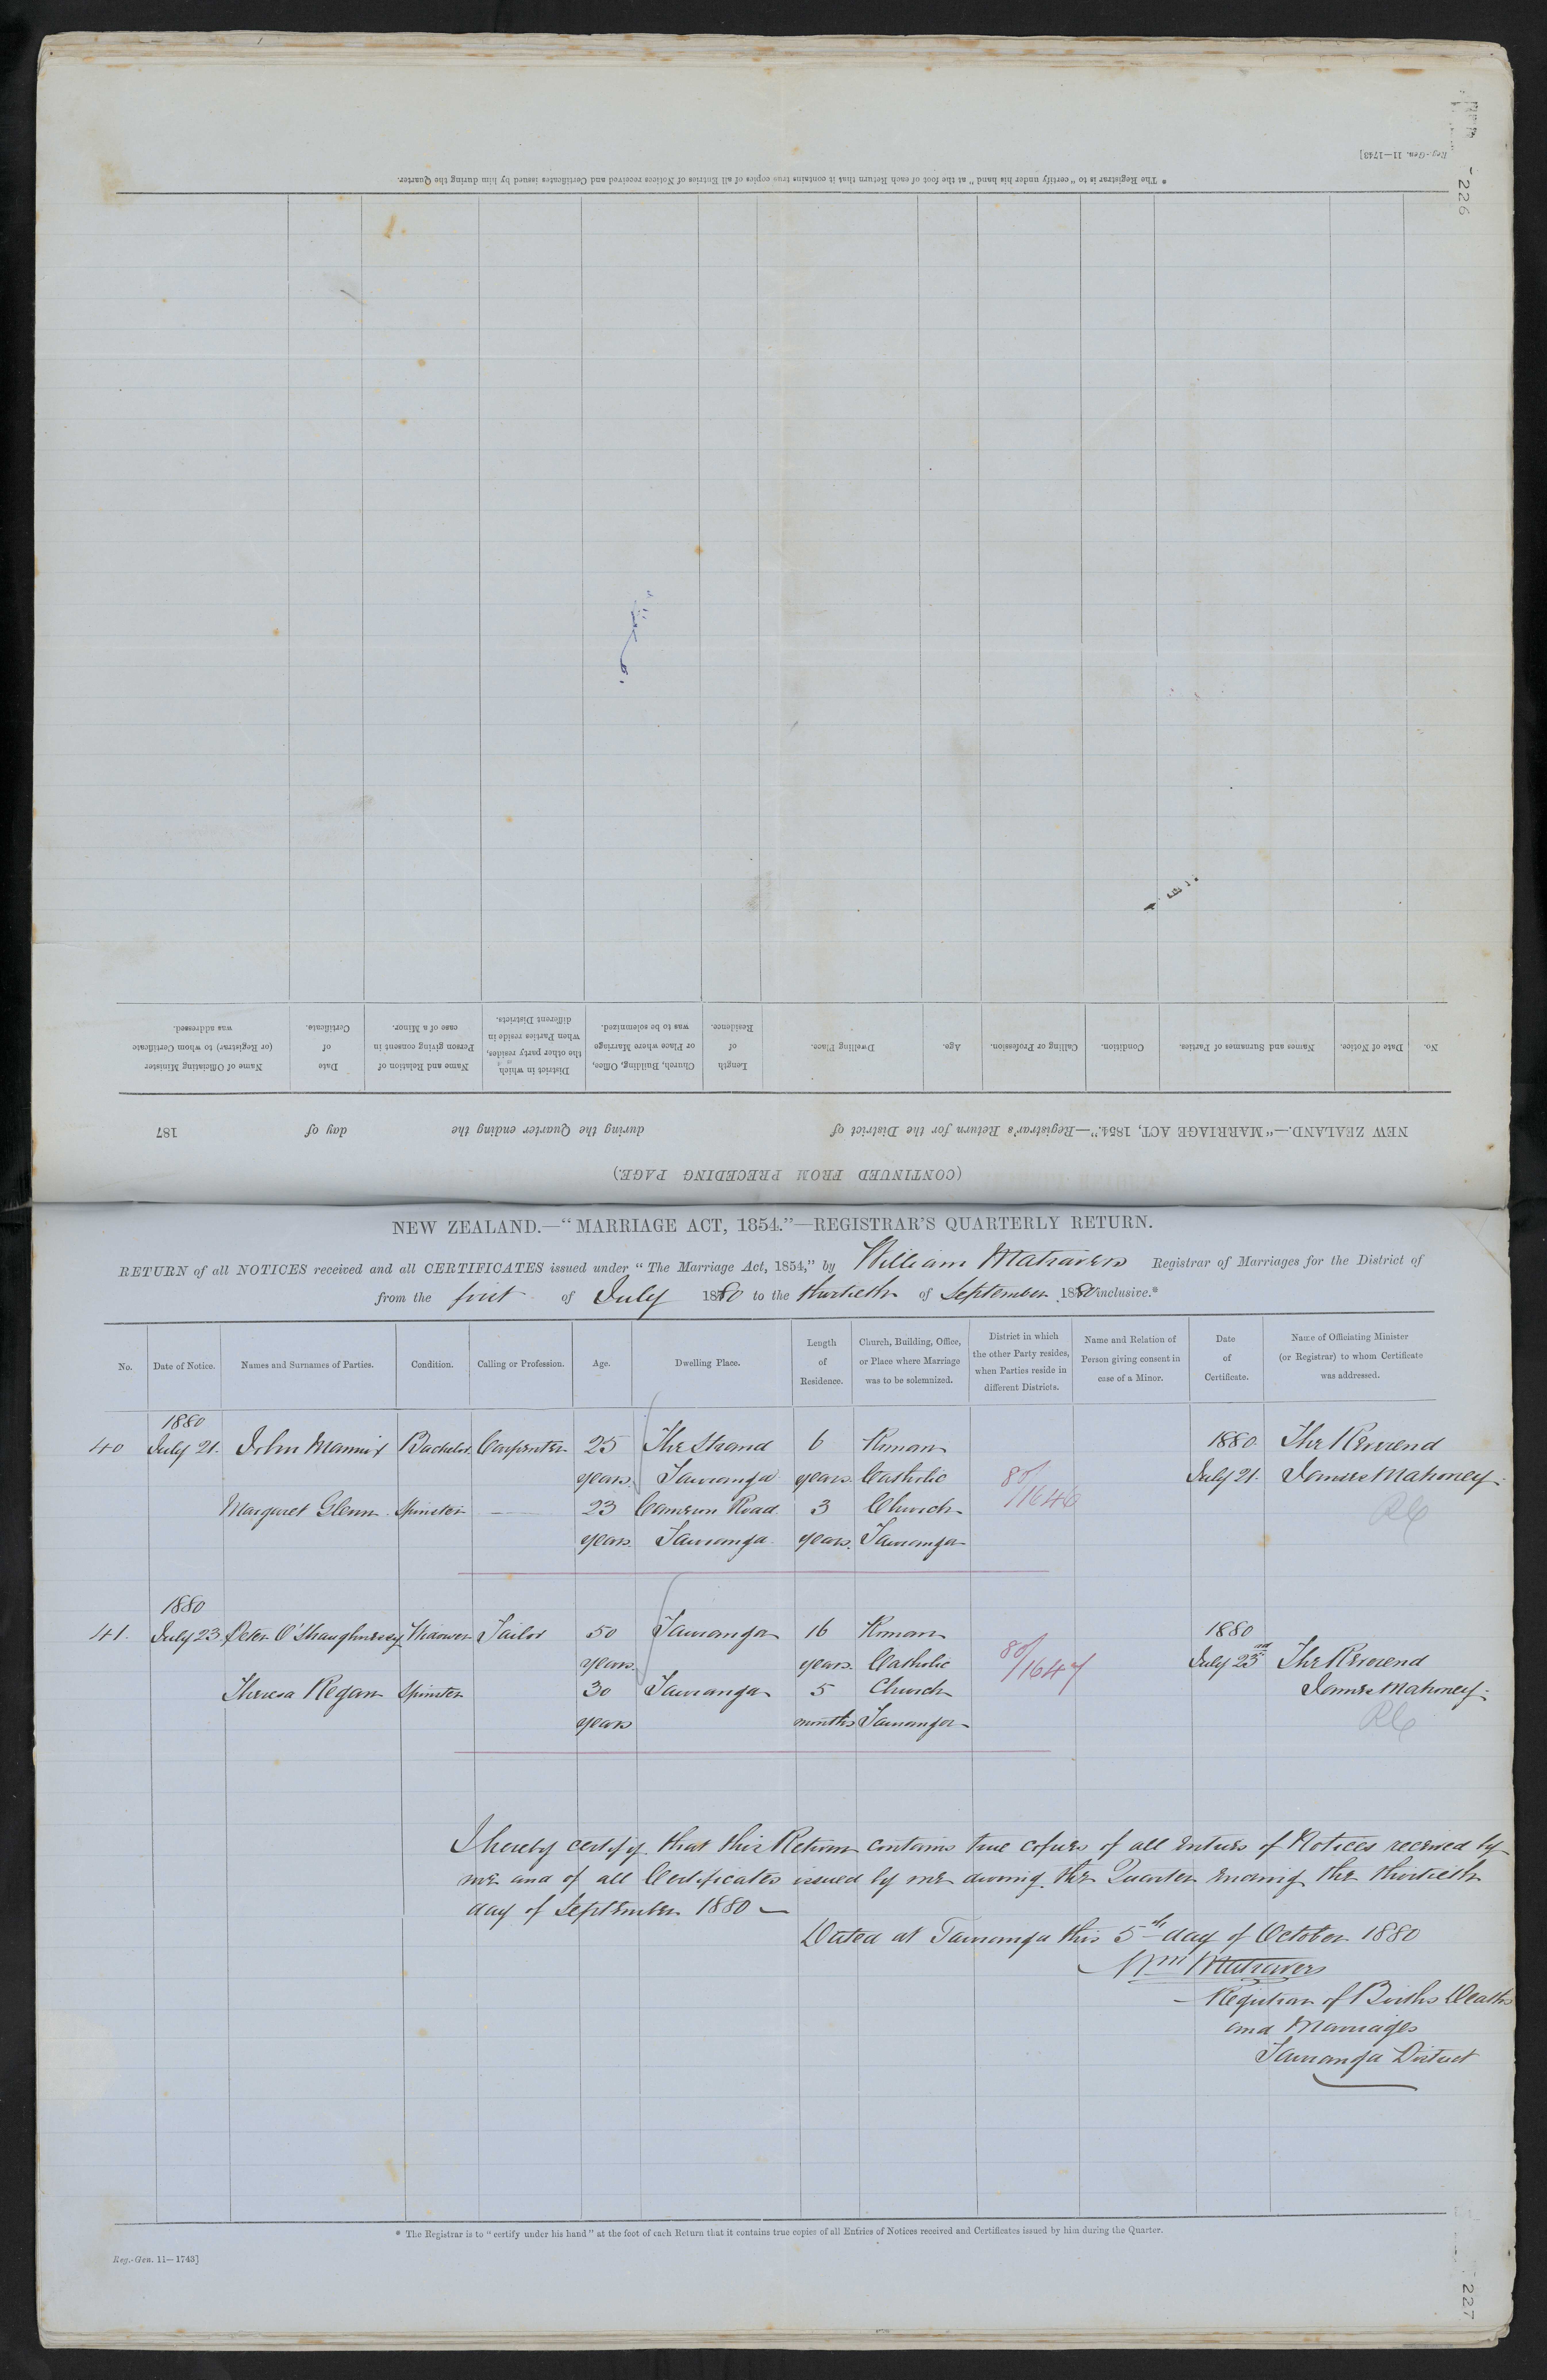 226
Reg.-Gen. 11—1743]
* The Registrar is to "certify under his hand" at the foot of each Return that it contains true copies of all Entries of Notices received and Certificates issued by him during the Quarter.
(CONTINUED FROM PRECEDING PAGE.)
NEW ZEALAND.—"MARRIAGE ACT, 1854."—Registrar's Return for the District of during the Quarter ending the day of 187
No. Date of Notice. Names and Surnames of Parties. Condition. Calling or Profession. Age. Dwelling Place. Length of Residence. Church, Building, Office, or Place where Marriage was to be solemnized. District in which the other party resides, when Parties reside in different Districts. Name and Relation of Person giving consent in case of a Minor. Date of Certificate. Name of Officiating Minister (or Registrar) to whom Certificate was addressed.
NEW ZEALAND.—"MARRIAGE ACT, 1854."—REGISTRAR'S QUARTERLY RETURN.
RETURN of all NOTICES received and all CERTIFICATES issued under "The Marriage Act, 1854," by William Matravers Registrar of Marriages for the District of
from the first of July 1880 to the thirtieth of September 1880 inclusive.*
No. Date of Notice. Names and Surnames of Parties. Condition. Calling or Profession. Age. Dwelling Place. Length of Residence. Church, Building, Office, or Place where Marriage was to be solemnized. District in which the other Party resides, when Parties reside in different Districts. Name and Relation of Person giving consent in case of a Minor. Date of Certificate. Name of Officiating Minister (or Registrar) to whom Certificate was addressed.
1880
40 July 21. John Mannix Bachelor Carpenter 25 The Strand 6 Roman 1880 The Reverend
years. Tauranga years. Catholic 80/1646 July 21. James Mahoney.
Margaret Glenn Spinster — 23 Cameron Road 3 Church RC
years. Tauranga years. Tauranga
1880
41. July 23 Peter O'Shaughnessy Widower Tailor 50 Tauranga 16 Roman 1880
years. years. Catholic 80/1647 July 23rd The Reverend
Theresa Regan Spinster 30 Tauranga 5 Church James Mahoney.
years months Tauranga RC
I hereby certify that this Return contains true copies of all entries of Notices received by
me and of all Certificates issued by me during the Quarter ending the thirtieth
day of September 1880 —
Dated at Tauranga this 5th day of October 1880
Wm Matravers
Registrar of Births Deaths
and Marriages
Tauranga District
* The Registrar is to "certify under his hand" at the foot of each Return that it contains true copies of all Entries of Notices received and Certificates issued by him during the Quarter.
Reg.-Gen. 11—1743]
227